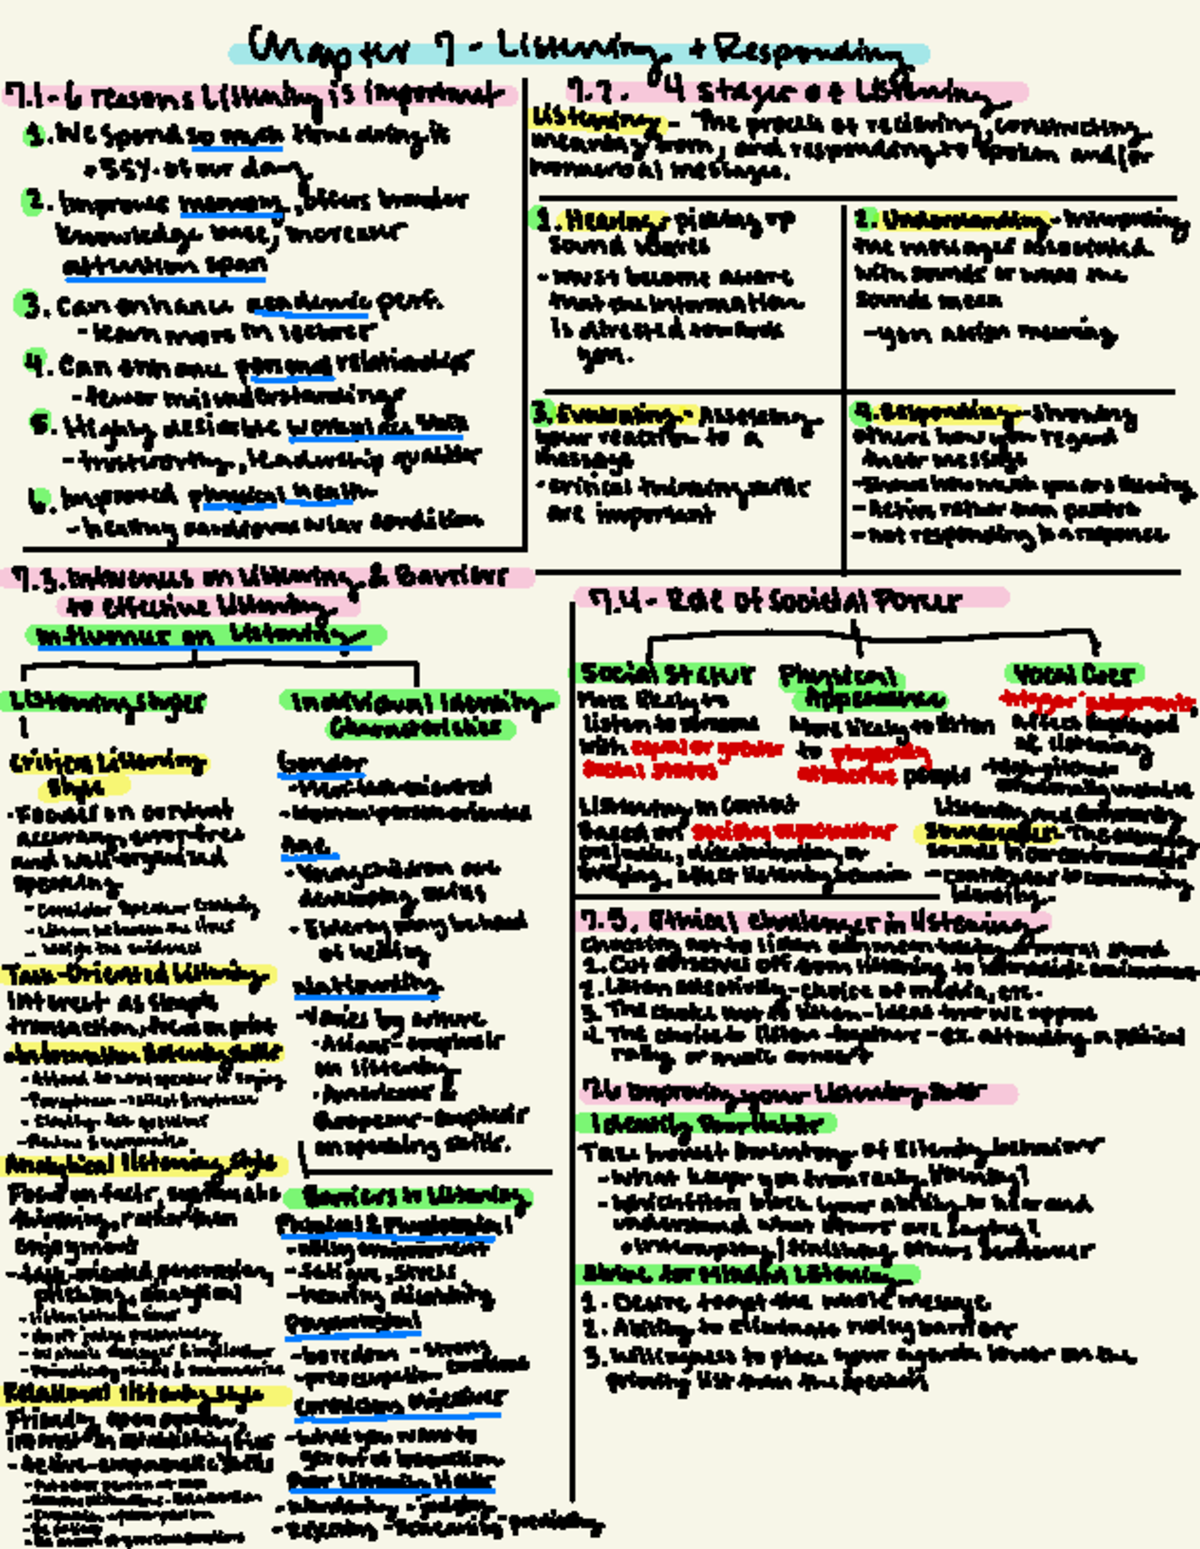 Chapter 7 - Listening + Responding
7.1 - 6 reasons Listening is Important
1. We spend so much time doing it
• 55% of our day
2. Improves memory, offers broader
knowledge base, increases
attention span
3. Can enhance academic perf.
- learn more in lecture
4. Can enhance personal relationships
- fewer misunderstandings
5. Highly desirable workplace
- trustworthy, leadership qualities
6. Improved physical health
- healthy cardiovascular condition
7.2. 4 Stages of Listening
Listening - "The process of recieving, constructing
meaning from, and responding to spoken and/or
nonverbal messages.
1. Hearing - picking up
sound waves
- Must become aware
that the information
is directed towards
you.
2. Understanding - Interpreting
the messages associated
with sounds or what the
sounds mean
- you assign meaning
3. Evaluating - Assessing
your reaction to a
message
- critical thinking skills
are important
4. Responding - Showing
others how you regard
their message
- Shows how much you are listening
- Active rather than passive
- not responding is a response
7.3. Influences on Listening & Barriers
to effective listening
Influences on Listening
Listening Styles
Critical Listening
Style
- Focuses on content
accuracy, error-free
and well-organized
speaking
- Consider speaker
- Listen between the lines
- Weigh the evidence
Task-Oriented Listening
Interest as simple
transaction, focus on point
- Attend to what speaker is saying
- Paraphrase -
- Clarify - Ask questions
- Review & summarize
Analytical listening style
Focus on facts, systematic
thinking, rather than
enjoyment
- task-oriented
- Don't judge prematurely
Relational listening style
Friendly, open
interest in establishing ties
- Active-empathetic skills
Individual Identity
Characteristics
Gender
- Men: task-oriented
- Women: person-oriented
Age
- Young children are
developing skills
- Elderly may be hard
of hearing
Nationality
- Varies by culture
• Asians - emphasis
on listening
• Americans &
Europeans - emphasis
on speaking skills.
Barriers to Listening
Physical & Physiological
- noisy environment
- fatigue, stress
- hearing disability
Psychological
- boredom - strong
- preoccupation emotions
Conflicting Objectives
- What you want to
get out of
Poor Listening Habits
- Wandering - judging
- Rejecting - predicting
7.4 - Role of Societal Power
Social Status
More likely to
listen to someone
with equal or greater
social status
Physical
Appearance
More likely to listen
to physically
attractive people
Vocal Cues
trigger judgements,
affect
of listening
- high-pitched:
emotionally unstable
Listening in Context
Based on societal expectations
prejudice, discrimination, or
bullying, affect listening behavior
Listening and Community
Soundscapes - The everyday
sounds in our environments
- contributes to community
identity.
7.5. Ethical challenges in listening
Choosing not to listen can mean taking a moral stand
1. Cut ourselves off from listening to
2. Listen selectively - choice of media, etc.
3. The choice not to listen - ideas that we oppose
4. The choice to listen together - ex. attending a political
rally, or music concert
7.6 Improving your Listening Skills
Identify Poor Habits
Take honest Inventory of listening behaviors
- What keeps you from really listening?
- Which filters block your ability to hear and
understand what others are saying?
• interrupting/finishing others sentences
Strive for Mindful Listening
1. Desire to get the whole message
2. Ability to eliminate noisy barriers
3. Willingness to place your agenda lower on the
priority list than the speaker's